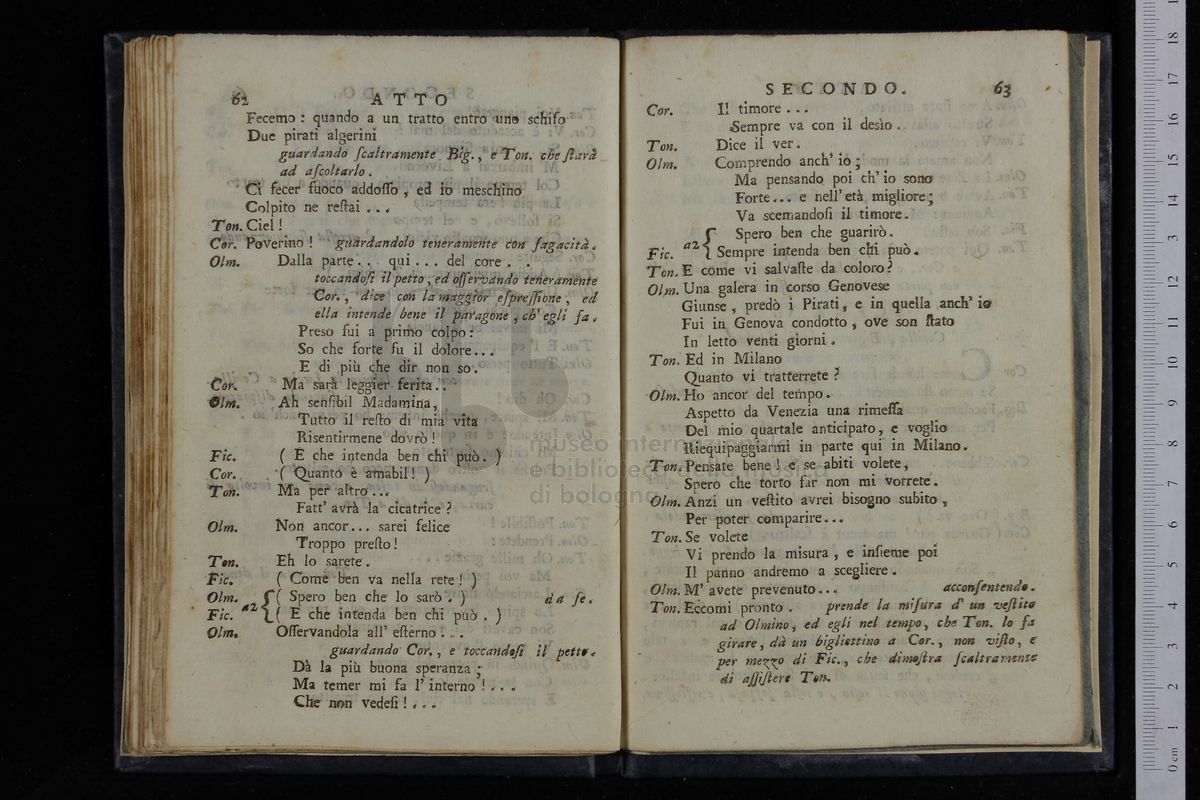 62 ATTO
Fecemo : quando a un tratto entro uno schifo
Due pirati algerini
guardando ſcaltramente Big., e Ton. che ſtarà
ad aſcoltarlo .
Ci fecer fuoco addoſſo , ed io meschino
Colpito ne reſtai ...
Ton. Ciel !
Cor. Poverino ! guardandolo teneramente con ſagacità .
Olm. Dalla parte .. qui ... del core . .
toccandoſi il petto , ed oſſervando teneramente
Cor. , dice con la maggior eſpreſſione , ed
ella intende bene il paragone , ch' egli fa .
Preso fui a primo colpo :
So che forte fu il dolore ...
E di più che dir non so .
Cor. Ma sarà leggier ferita ..
Olm. Ah senſibil Madamina ,
Tutto il reſto di mia vita
Risentirmene dovrò !
Fic. ( E che intenda ben chi può . )
Cor. ( Quanto è amabil ! )
Ton. Ma per altro ...
Fatt' avrà la cicatrice ?
Olm. Non ancor ... sarei felice
Troppo preſto !
Ton. Eh lo sarete .
Fic. ( Come ben va nella rete ! )
Olm. a2 { ( Spero ben che lo sarò . ) da ſe .
Fic. ( E che intenda ben chi può . )
Olm. Oſſervandola all' eſterno ...
guardando Cor. , e toccandoſi il petto .
Dà la più buona speranza ;
Ma temer mi fa l' interno ! ...
Che non vedeſi ! ...
SECONDO. 63
Cor. Il timore ...
Sempre va con il desìo .
Ton. Dice il ver .
Olm. Comprendo anch' io ;
Ma pensando poi ch' io sono
Forte ... e nell' età migliore ;
Va scemandoſi il timore .
a2 { Spero ben che guarirò .
Fic. Sempre intenda ben chi può .
Ton. E come vi salvaſte da coloro ?
Olm. Una galera in corso Genovese
Giunse , predò i Pirati , e in quella anch' io
Fui in Genova condotto , ove son ſtato
In letto venti giorni .
Ton. Ed in Milano
Quanto vi tratterrete ?
Olm. Ho ancor del tempo .
Aspetto da Venezia una rimeſſa
Del mio quartale anticipato , e voglio
Riequipaggiarmi in parte qui in Milano .
Ton. Pensate bene ! e se abiti volete ,
Spero che torto far non mi vorrete .
Olm. Anzi un veſtito avrei bisogno subito ,
Per poter comparire ...
Ton. Se volete
Vi prendo la misura , e inſieme poi
Il panno andremo a scegliere .
Olm. M' avete prevenuto ... acconſentendo .
Ton. Eccomi pronto . prende la miſura d' un veſtito
ad Olmino , ed egli nel tempo , che Ton. lo fa
girare , dà un bigliettino a Cor. , non viſto , e
per mezzo di Fic. , che dimoſtra ſcaltramente
di aſſiſtere Ton.
museo internazionale
e biblioteca della musica
di bologna
0 cm 1 2 3 4 5 6 7 8 9 10 11 12 13 14 15 16 17 18